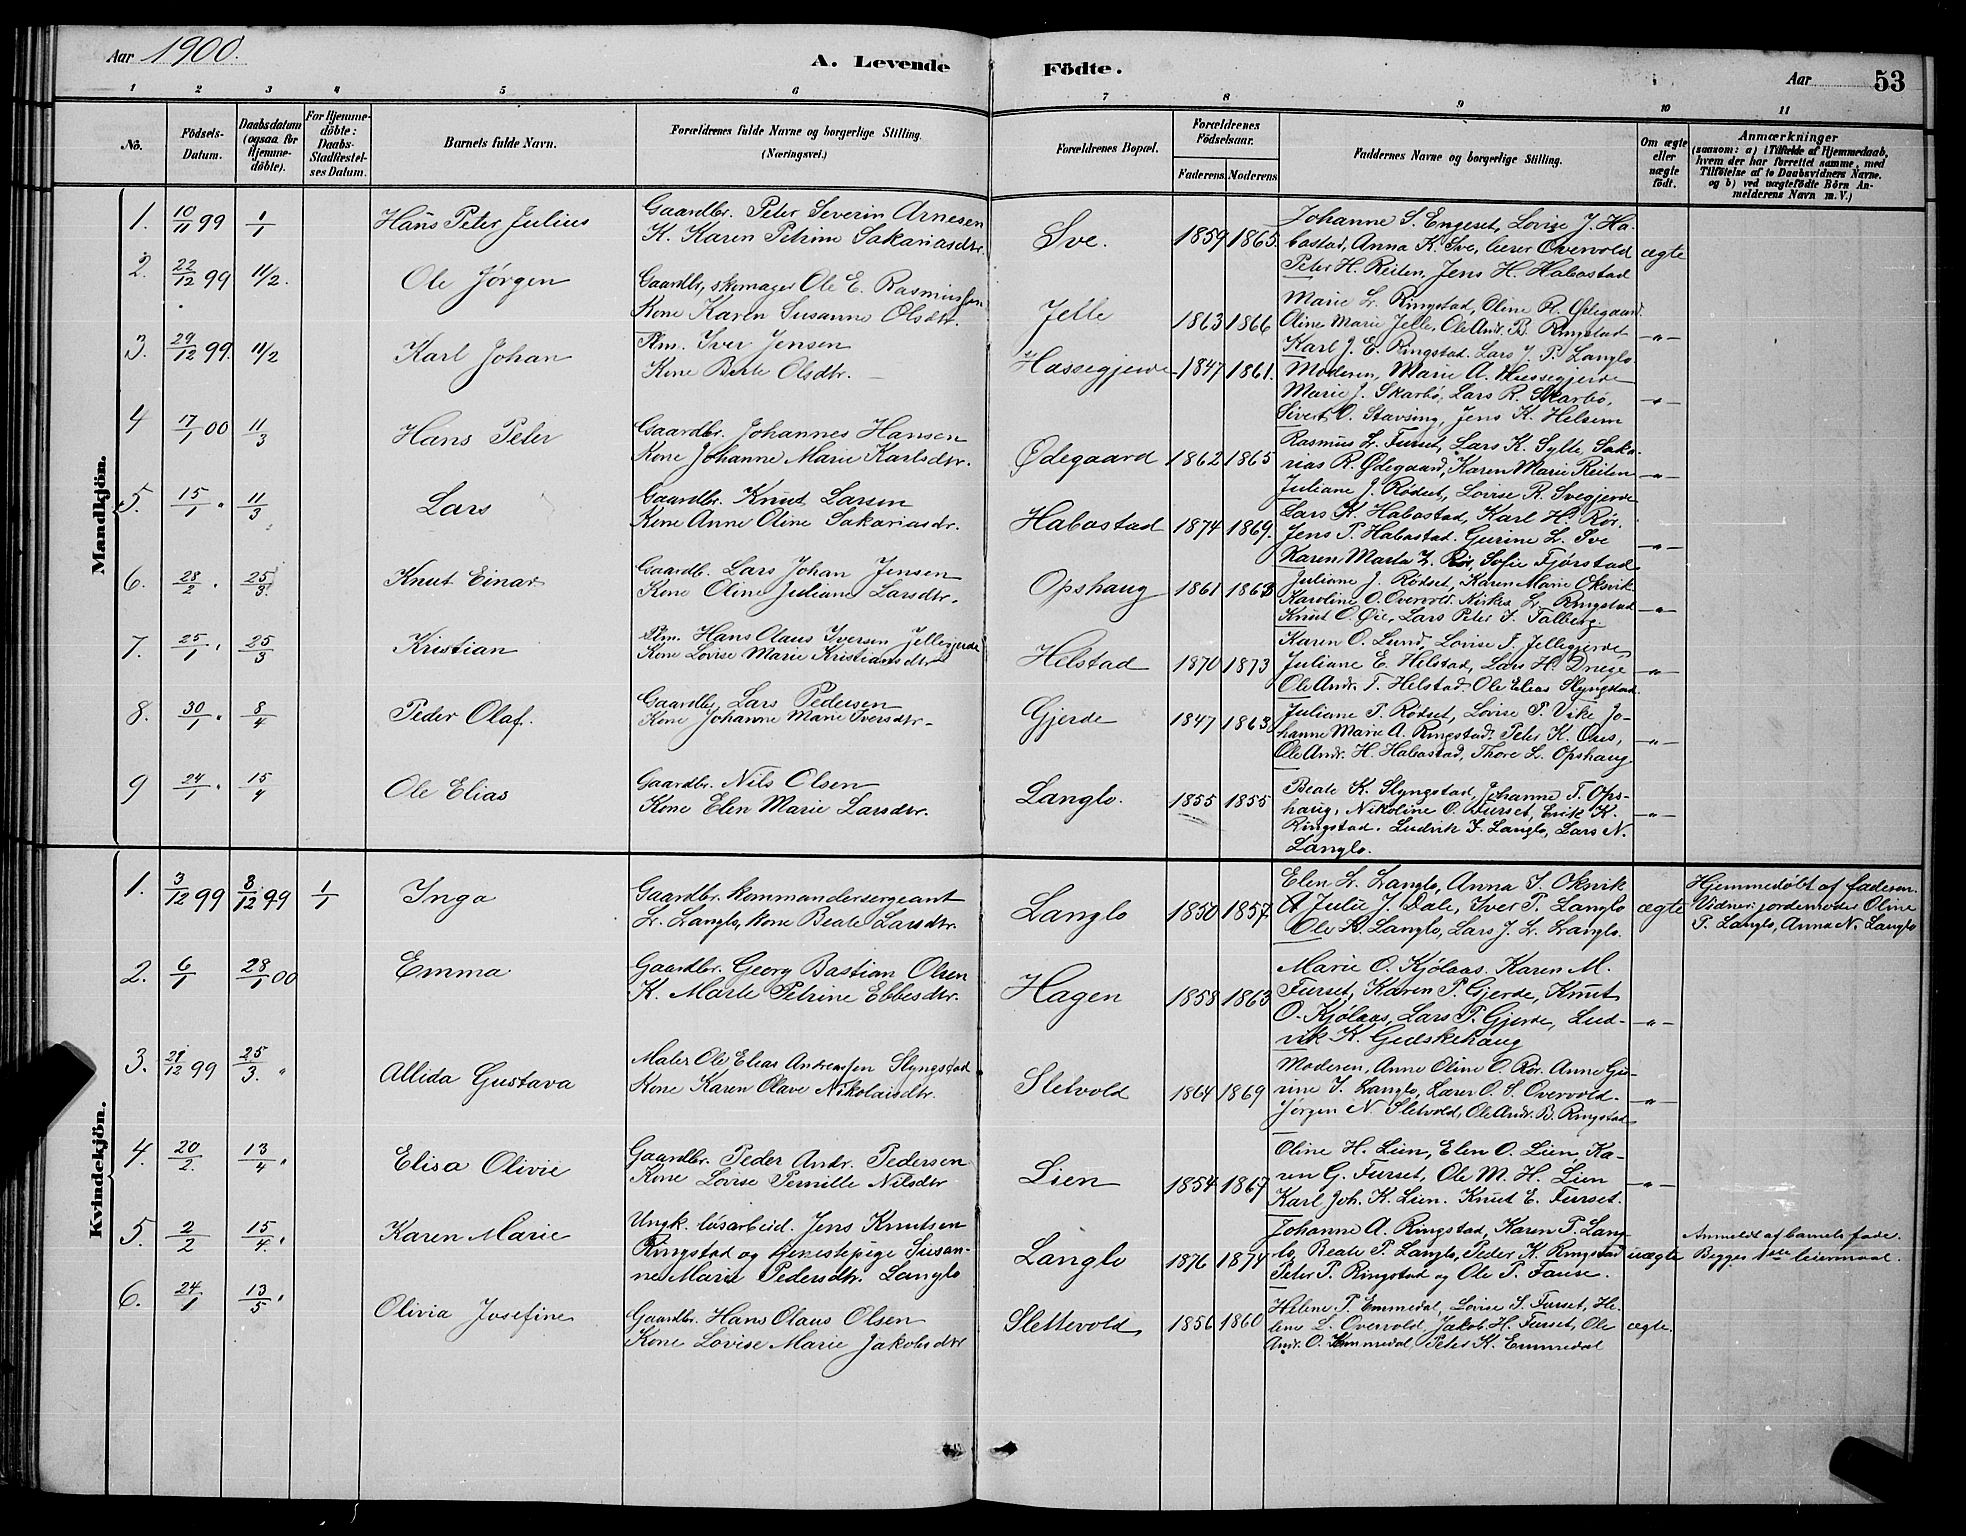 Aar 1900. A. Levende Födte. Aar 53
1 2 3 4 5 6 7 8 9 10 11
No. Födsels-Datum. Daabsdatum (ogsaa for Hjemmedöbte). For Hjemmedöbte: Daabs-Stadfæstelses Datum. Barnets fulde Navn. Forældrenes fulde Navne og borgerlige Stilling. (Næringsvei.) Forældrenes Bopæl. Forældrenes Födselsaar. Faderens Moderens Faddernes Navne og borgerlige Stilling. Om ægte eller uægte födt. Anmærkninger (saasom: a) i Tilfælde af Hjemmedaab, hvem der har forrettet samme, med Tilföielse af to Daabsvidners Navne, og b) ved uægtefödte Börn Anmelderens Navn m. V.)
Mandkjön.
1. 10/11 99 1/1 Hans Peter Julius
Gaardbr. Peter Severin Arnesen
K. Karen Petrine Sakariasdtr.
Sve. 1859 1865
Johanne S. Engeset, Lovise J. Ha-
bostad, Anna K. Sve, lærer Overvold
Peter H. Reiten, Jens H. Habostad
ægte
2. 22/12 99 11/2. Ole Jørgen
Gaardbr, skomager Ole E. Rasmussen
Kone Karen Susanne Olsdtr.
Jelle 1863 1866
Marie L. Ringstad, Oline R. Ødegaard
Oline Marie Jelle, Ole Andr. B. Ringstad
Karl J. E. Ringstad. Lars J. P. Langlo
-"-
3. 29/12 99. 11/2 Karl Johan
Plm. Iver Jensen
Kone Berte Olsdtr.
Hassegjerde 1847 1861.
Moderen, Marie A. Hassegjerde
Marie J. Skarbø, Lars R. Skarbø,
Sivert O. Stavsing, Jens K. Helsem
-"-
4 17/1 00 11/3 Hans Peter
Gaardbr. Johannes Hansen
Kone Johanne Marie Karlsdtr.
Ødegaard 1862 1865
Rasmus L. Furset, Lars K. Sylte, Saka-
rias R. Ødegaard, Karen Marie Reiten
Juliane J. Rødset, Lovise R. Svegjerde
-"-
5. 15/1 " 11/3 Lars
Gaardbr. Knut Larsen
Kone Anne Oline Sakariasdr.
Habostad 1874 1869.
Lars K. Habostad, Karl H. Rør.
Jens P. Habostad. Gurine L. Sve
Karen Marta L. Rør, Sofie Fjørstad
-"-
6. 28/2 " 25/3 Knut Einar
Gaardb. Lars Johan Jensen
Kone Oline Juliane Larsdtr.
Opshaug 1861 1863
Juliane J. Rødset, Karen Marie Oksvik
Karoline O. Overvold. L. Ringstad
Knut O. Øie, Lars Peter J. Talberg.
-"-
7. 25/1 " 25/3 Kristian
Plm. Hans Olaus Iversen Jellegjerde
Kone Lovise Marie Kristiansdtr
Helstad 1870 1873
Karen O. Lund, Lovise J. Jellegjerde
Juliane E. Helstad, Lars H. Drege
Ole Andr. T. Helstad. Ole Elias Slyngstad.
-"-
8. 30/1 " 8/4 Peder Olaf.
Gaardbr, Lars Pedersen
Kone Johanne Marie Iversdtr.
Gjerde 1847 1863
Juliane P. Rødset, Lovise P. Vike Jo-
hanne Marie A. Ringstad. Peter K. Ous,
Ole Andr. H. Habostad, Thore L. Opshaug.
-"-
9 24/1 " 15/4 Ole Elias
Gaardbr. Nils Olsen
Kone Elen Marie Larsdtr.
Langlo. 1855 1855
Beate K. Slyngstad, Johanne T. Ops-
haug, Nikoline O. Furset, Erik K.
Ringstad. Ludvik J. Langlo, Lars N.
Langlo.
-"-
Kvindekjön.
1. 3/12 99 8/12 99 1/1 Inga
Gaardbr. kommandersergeant
L. Langlo, kone Beate Larsdtr.
Langlo 1850 1857
Elen L. Langlo, Anna J. Oksvik
Julie J. Dale, Iver P. Langlo
Ole B. Langlo, Lars J. L. Langlo.
ægte
Hjemmedøbt af faderen.
Vidner: jordemoder Oline
P. Langlo, Anna N. Langlo
2. 6/1 28/1 00 Emma
Gaardbr. Georg Bastian Olsen
K. Marte Petrine Ebbesdtr.
Hagen 1858 1863
Marie O. Kjølaas. Karen M.
Furset, Karen P. Gjerde, Knut
O. Kjølaas, Lars P. Gjerde, Lud-
vik K. Gudskehaug
-"-
3. 29/12 99 25/3. " Allida Gustava
Maler Ole Elias Andreassen Slyngstad
Kone Karen Olave Nikolaisdtr.
Sletvold 1864 1869
Moderen, Anne Oline O. Rør. Anne Gu-
rine J. Langlo, Lærer O. S. Overvold.
Jørgen N. Sletvold, Ole Andr. B. Ringstad
-"-
4. 20/2. 13/4 " Elisa Olivie
Gaardbr. Peder Andr. Pedersen
Kone Lovise Pernille Nilsdtr
Lien 1854 1867
Oline H. Lien, Elen O. Lien, Ka-
ren G. Furset, Ole M. H. Lien
Karl Joh. K. Lien. Knut E. Furset.
-"-
5. 2/2 15/4 " Karen Marie
Ungk. løsarbeid. Jens Knutsen
Ringstad og tjenestepige Susan-
ne Marie Pedersdtr. Langlo
Langlo 1876 1874
Johanne A. Ringstad, Karen P. Lang-
lo, Beate P. Langlo, Peder K. Ringstad
Peter P. Ringstad og Ole P. Fause.
uægte
Anmeldt af barnets fader.
Begges 1ste leiermaal.
6. 24/1 13/5 " Olivia Josefine
Gaardbr. Hans Olaus Olsen
Kone Lovise Marie Jakobsdtr
Slettevold 1856 1860
Heline P. Emmedal, Lovise S. Furset, He-
line L. Overvold, Jakob H. Furset, Ole
Andr. O. Emmedal, Peter K. Emmedal
ægte.